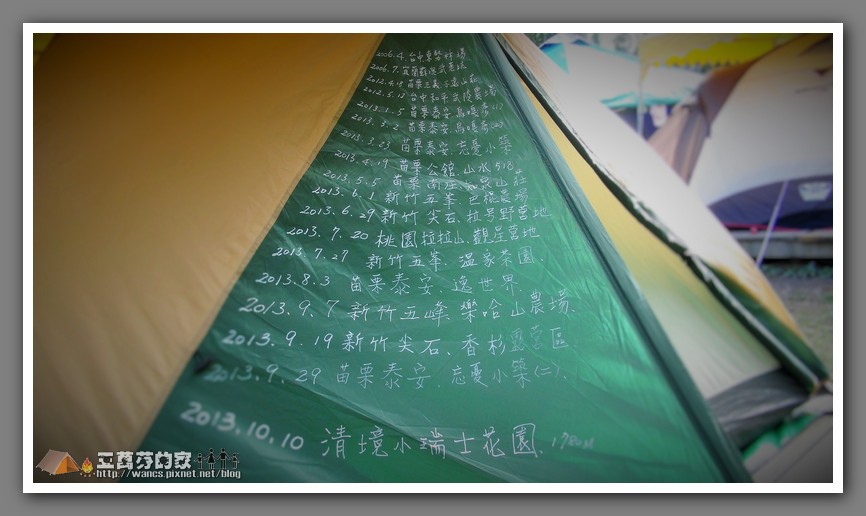 2006.4. 台中東勢林場
2006.7. 宜蘭
2012.4. 苗栗三義
2012.5.12 台中和平武陵農場
2013.1.5 苗栗泰安烏嘎彥(一)
2013.3.2 苗栗泰安.烏嘎彥(二)
2013.3.23 苗栗泰安.忘憂小築
2013.4.19 苗栗公館.山水518
2013.5.5 苗栗南庄 山莊
2013.6. 新竹五峯.巴棍農場
2013.6.29 新竹尖石.拉号野營地
2013.7.20 桃園拉拉山.觀星營地
2013.7.27 新竹五峯.溫家茶園.
2013.8.3 苗栗泰安.逸世界.
2013.9.7 新竹五峰.樂哈山農場.
2013.9.19 新竹尖石.香杉露營區
2013.9.29 苗栗泰安.忘憂小築(二).
2013.10.10 清境小瑞士花園. 1780M
王萬芬的家
http://wancs.pixnet.net/blog